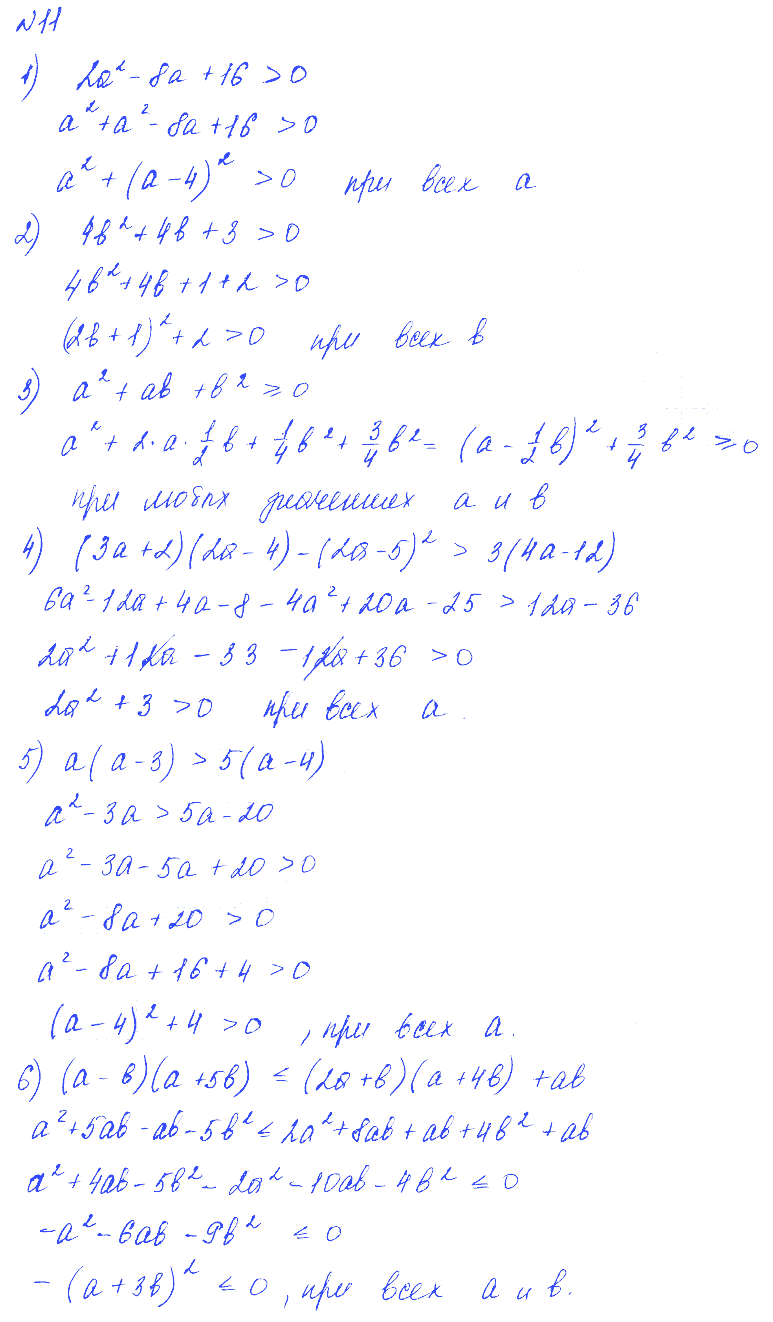 №11
1) 2a² - 8a + 16 > 0
a² + a² - 8a + 16 > 0
a² + (a - 4)² > 0 при всех a
2) 4b² + 4b + 3 > 0
4b² + 4b + 1 + 2 > 0
(2b + 1)² + 2 > 0 при всех b
3) a² + ab + b² ≥ 0
a² + 2·a·1/2 b + 1/4 b² + 3/4 b² = (a - 1/2 b)² + 3/4 b² ≥ 0
при любых значениях a и b
4) (3a + 2)(2a - 4) - (2a - 5)² > 3(4a - 12)
6a² - 12a + 4a - 8 - 4a² + 20a - 25 > 12a - 36
2a² + 12a - 33 - 12a + 36 > 0
2a² + 3 > 0 при всех a.
5) a(a - 3) > 5(a - 4)
a² - 3a > 5a - 20
a² - 3a - 5a + 20 > 0
a² - 8a + 20 > 0
a² - 8a + 16 + 4 > 0
(a - 4)² + 4 > 0, при всех a.
6) (a - b)(a + 5b) ≤ (2a + b)(a + 4b) + ab
a² + 5ab - ab - 5b² ≤ 2a² + 8ab + ab + 4b² + ab
a² + 4ab - 5b² - 2a² - 10ab - 4b² ≤ 0
-a² - 6ab - 9b² ≤ 0
-(a + 3b)² ≤ 0, при всех a и b.